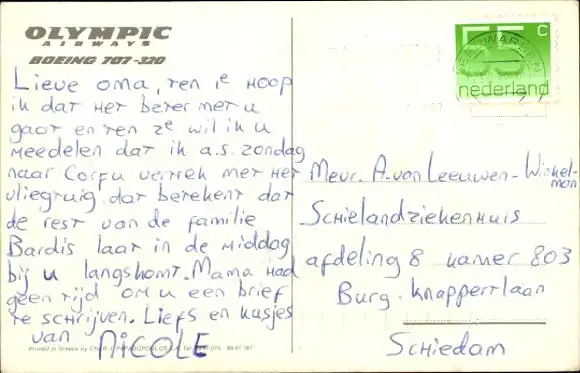 OLYMPIC
AIRWAYS
BOEING 707-320
Lieve oma, ten 1e hoop
ik dat het beter met u
gaat en ten 2e wil ik u
meedelen dat ik a.s. zondag
naar Corfu vertrek met het
vliegtuig. dat betekent dat
de rest van de familie
Bardis laat in de middag
bij u langskomt. Mama had
geen tijd om u een brief
te schrijven. Liefs en kusjes
van NICOLE
Printed in Greece by
55 c
nederland
Mevr. A. van Leeuwen-Winkel-
man
Schielandziekenhuis
afdeling 8 kamer 803
Burg. Knappertlaan
Schiedam